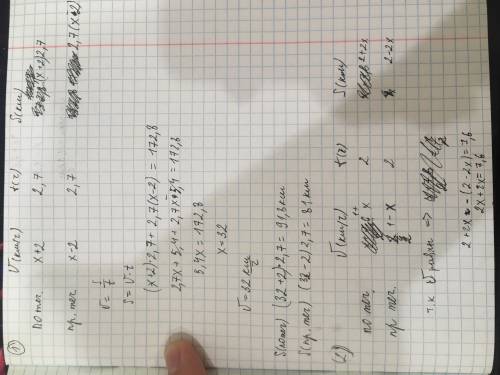 1)
V(км/ч) t(ч) S(км)
по теч. x+2 2,7 (x+2)2,7
пр. теч. x-2 2,7 2,7(x-2)
S=V·t
(x+2)·2,7+2,7(x-2)=172,8
2,7x+5,4+2,7x-5,4=172,8
5,4x=172,8
x=32
V=32 км/ч
S(по теч) (32+2)·2,7=91,8км
S(пр. теч) (32-2)2,7=81км
(2)
V(км/ч) t(ч) S(км)
по теч. 1+x 2 2+2x
пр. теч. 1-x 2 2-2x
т.к V равны =>
2+2x-(2-2x)=7,6
2x+2x=7,6